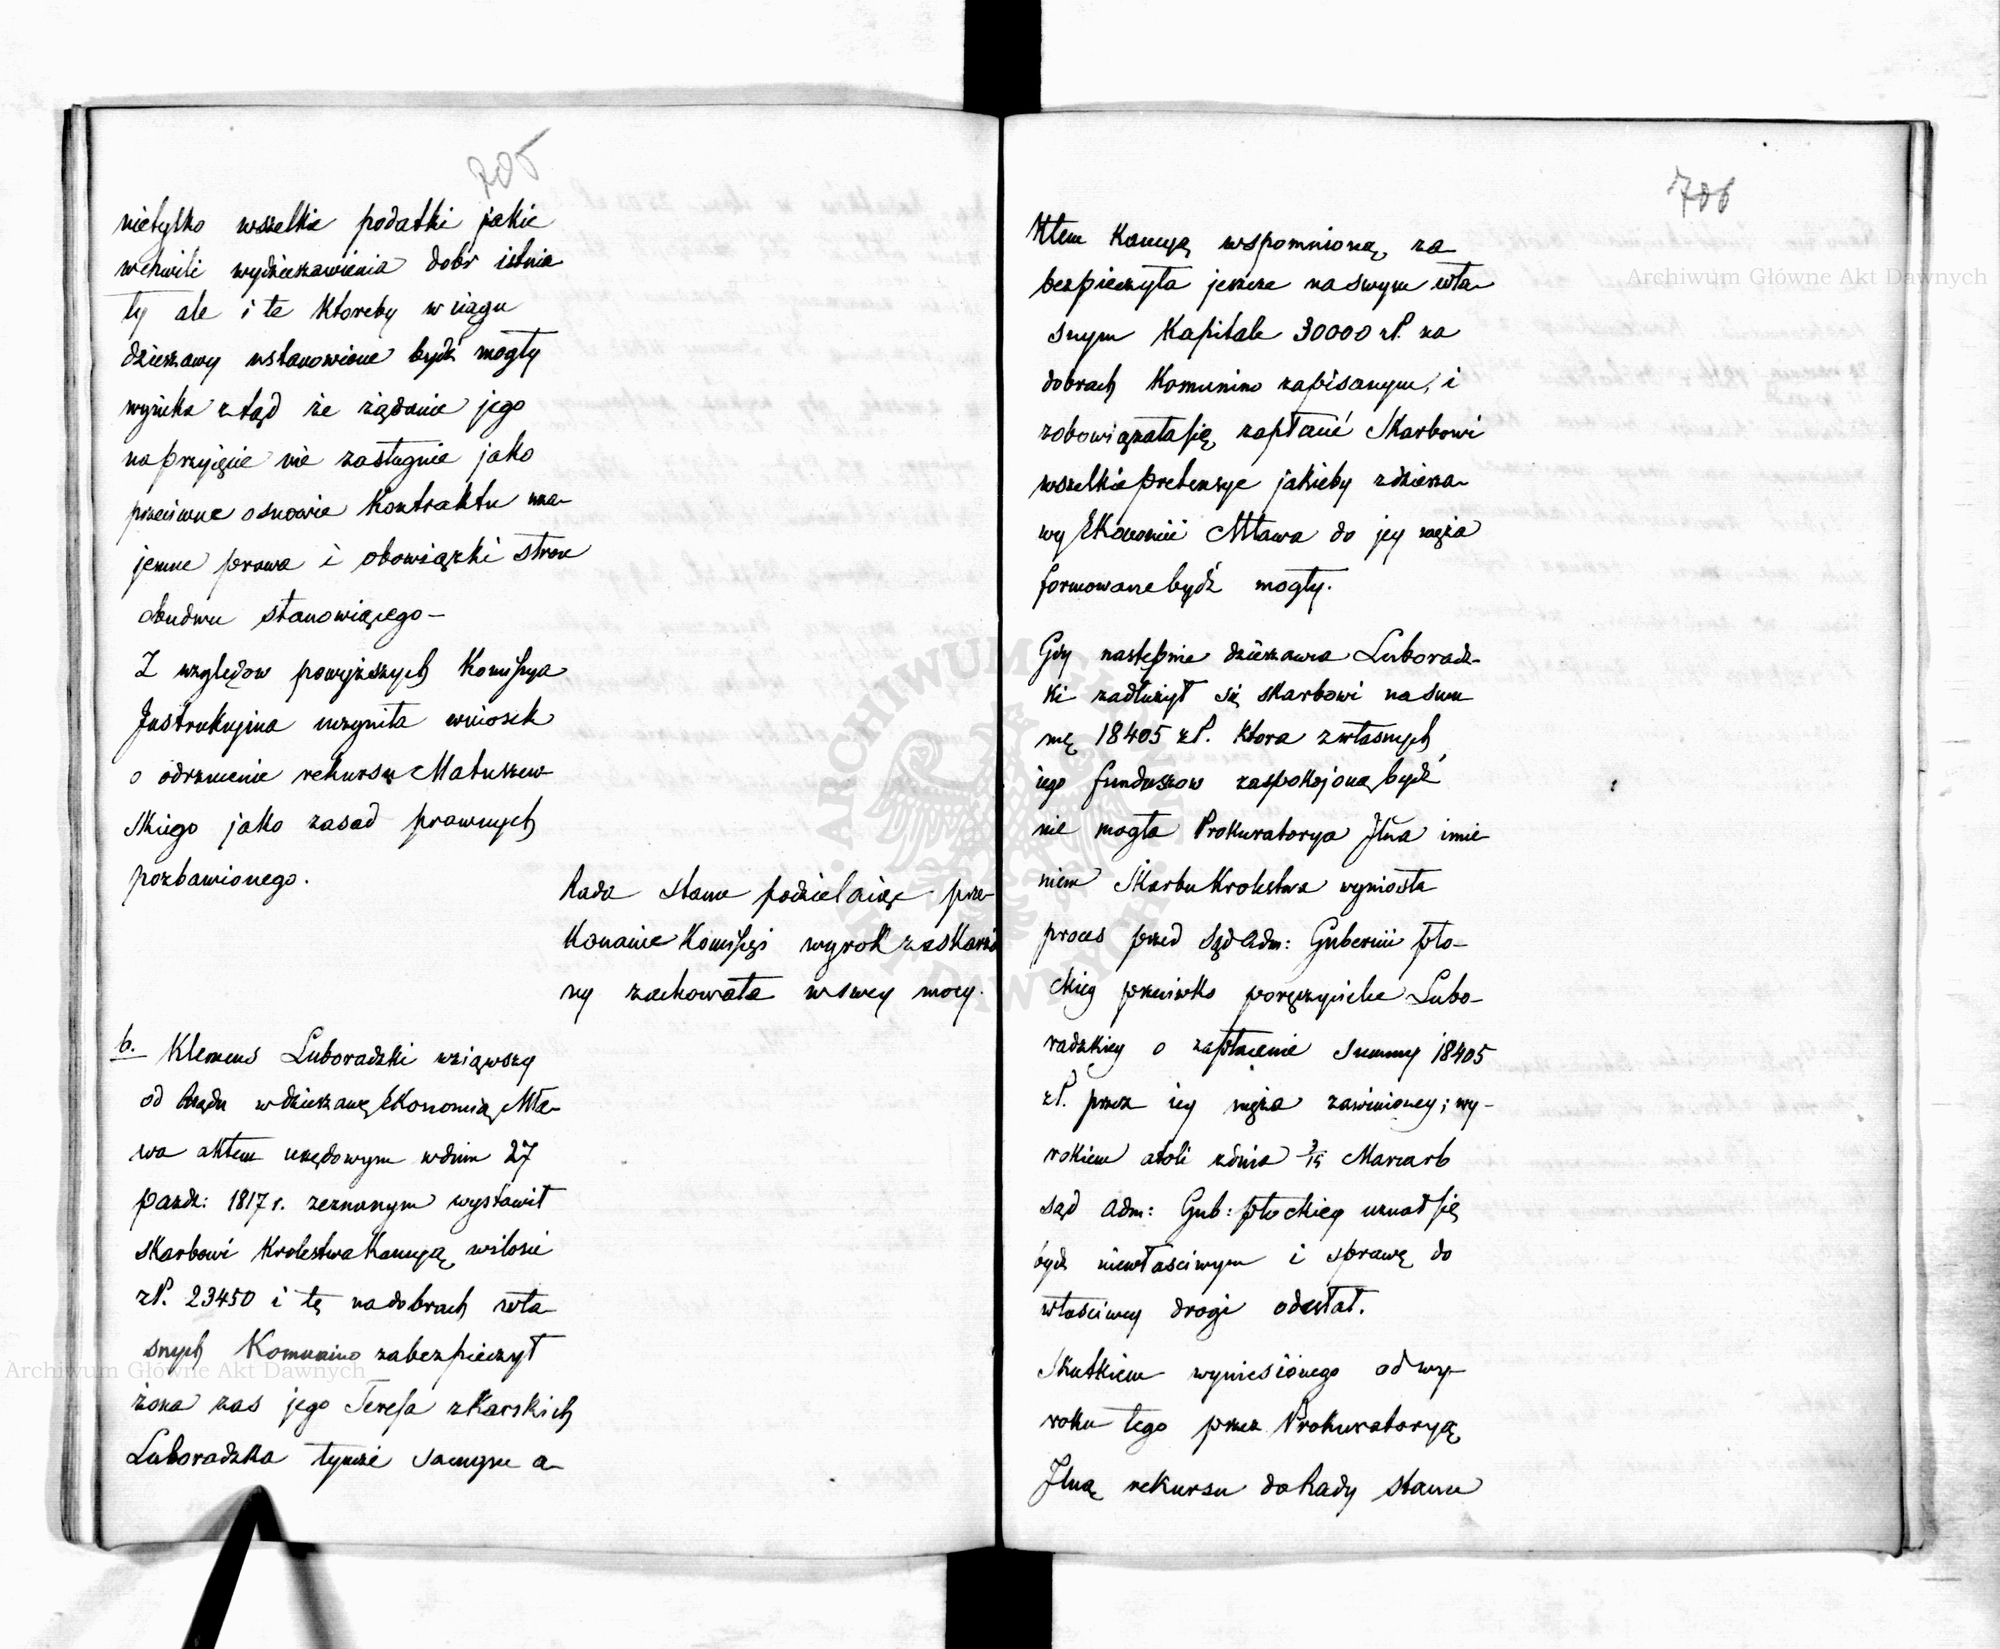 705
nietylko wszelkie podatki jakie
wchwili wydzierzawienia dobr istnia
ły ale i te ktoreby w ciągu
dzierzawy ustanowione bydź mogły
wynika ztąd że żądanie jego
na przyjęcie nie zasługuie jako
przeciwne osnowie Kontraktu wza-
jemne prawa i obowiązki stron
obudwu stanowiącego-
Z względow powyższych Komissya
Instrukcyjna uczyniła wniosek
o odrzucenie rekursu Matuszew-
skiego jako zasad prawnych
pozbawionego.
Rada Stanu podzielaiąc prze-
konanie Komissyi wyrok zaskarżo
ny zachowała w swey mocy.
6. Klemens Luboradzki wziąwszy
od Rządu w dzierzawę Ekonomią Mła-
wa aktem urzędowym w dniu 27
Pazdz: 1817 r. zeznanym wystawił
Skarbowi Krolestwa Kaucyą wilosci
zł. 23450 i tę na dobrach wła-
snych Komunino zabezpieczył
żona zas jego Teressa z Karskich
Luboradzka tymże samym a-
706
Ktem Kaucyą wspomnioną za-
bezpieczyła jeszcze na swym wła-
snym Kapitale 30000 zł. na
dobrach Komunino zapisanym, i
zobowiązała się zapłacić Skarbowi
wszelkie pretensye jakieby z dzierza-
wy Ekonomii Mława do jey męża
formowane bydź mogły.
Gdy następnie dzierzawca Luboradz-
ki zadłużył się skarbowi na sum
mę 18405 zł. ktora z własnych
iego funduszow zaspokojoną bydź
nie mogła Prokuratorya Jlna imie-
niem Skarbu Krolestwa wyniosła
proces przed Sąd Adm: Gubernii Pło-
ckiey przeciwko poręczycielce Lubo-
radzkiey o zapłacenie Summy 18405
zł. przez iey męża zawinioney; wy-
rokiem atoli z dnia 3/15 Marca rb
sąd Adm: Gub: płockiey uznał się
bydź niewłaściwym i sprawę do
właściwey drogi odesłał.
Skutkiem wyniesionego od wy-
roku tego przez Prokuratoryą
Jlną rekursu do Rady Stanu
Archiwum Główne Akt Dawnych
Archiwum Główne Akt Dawnych